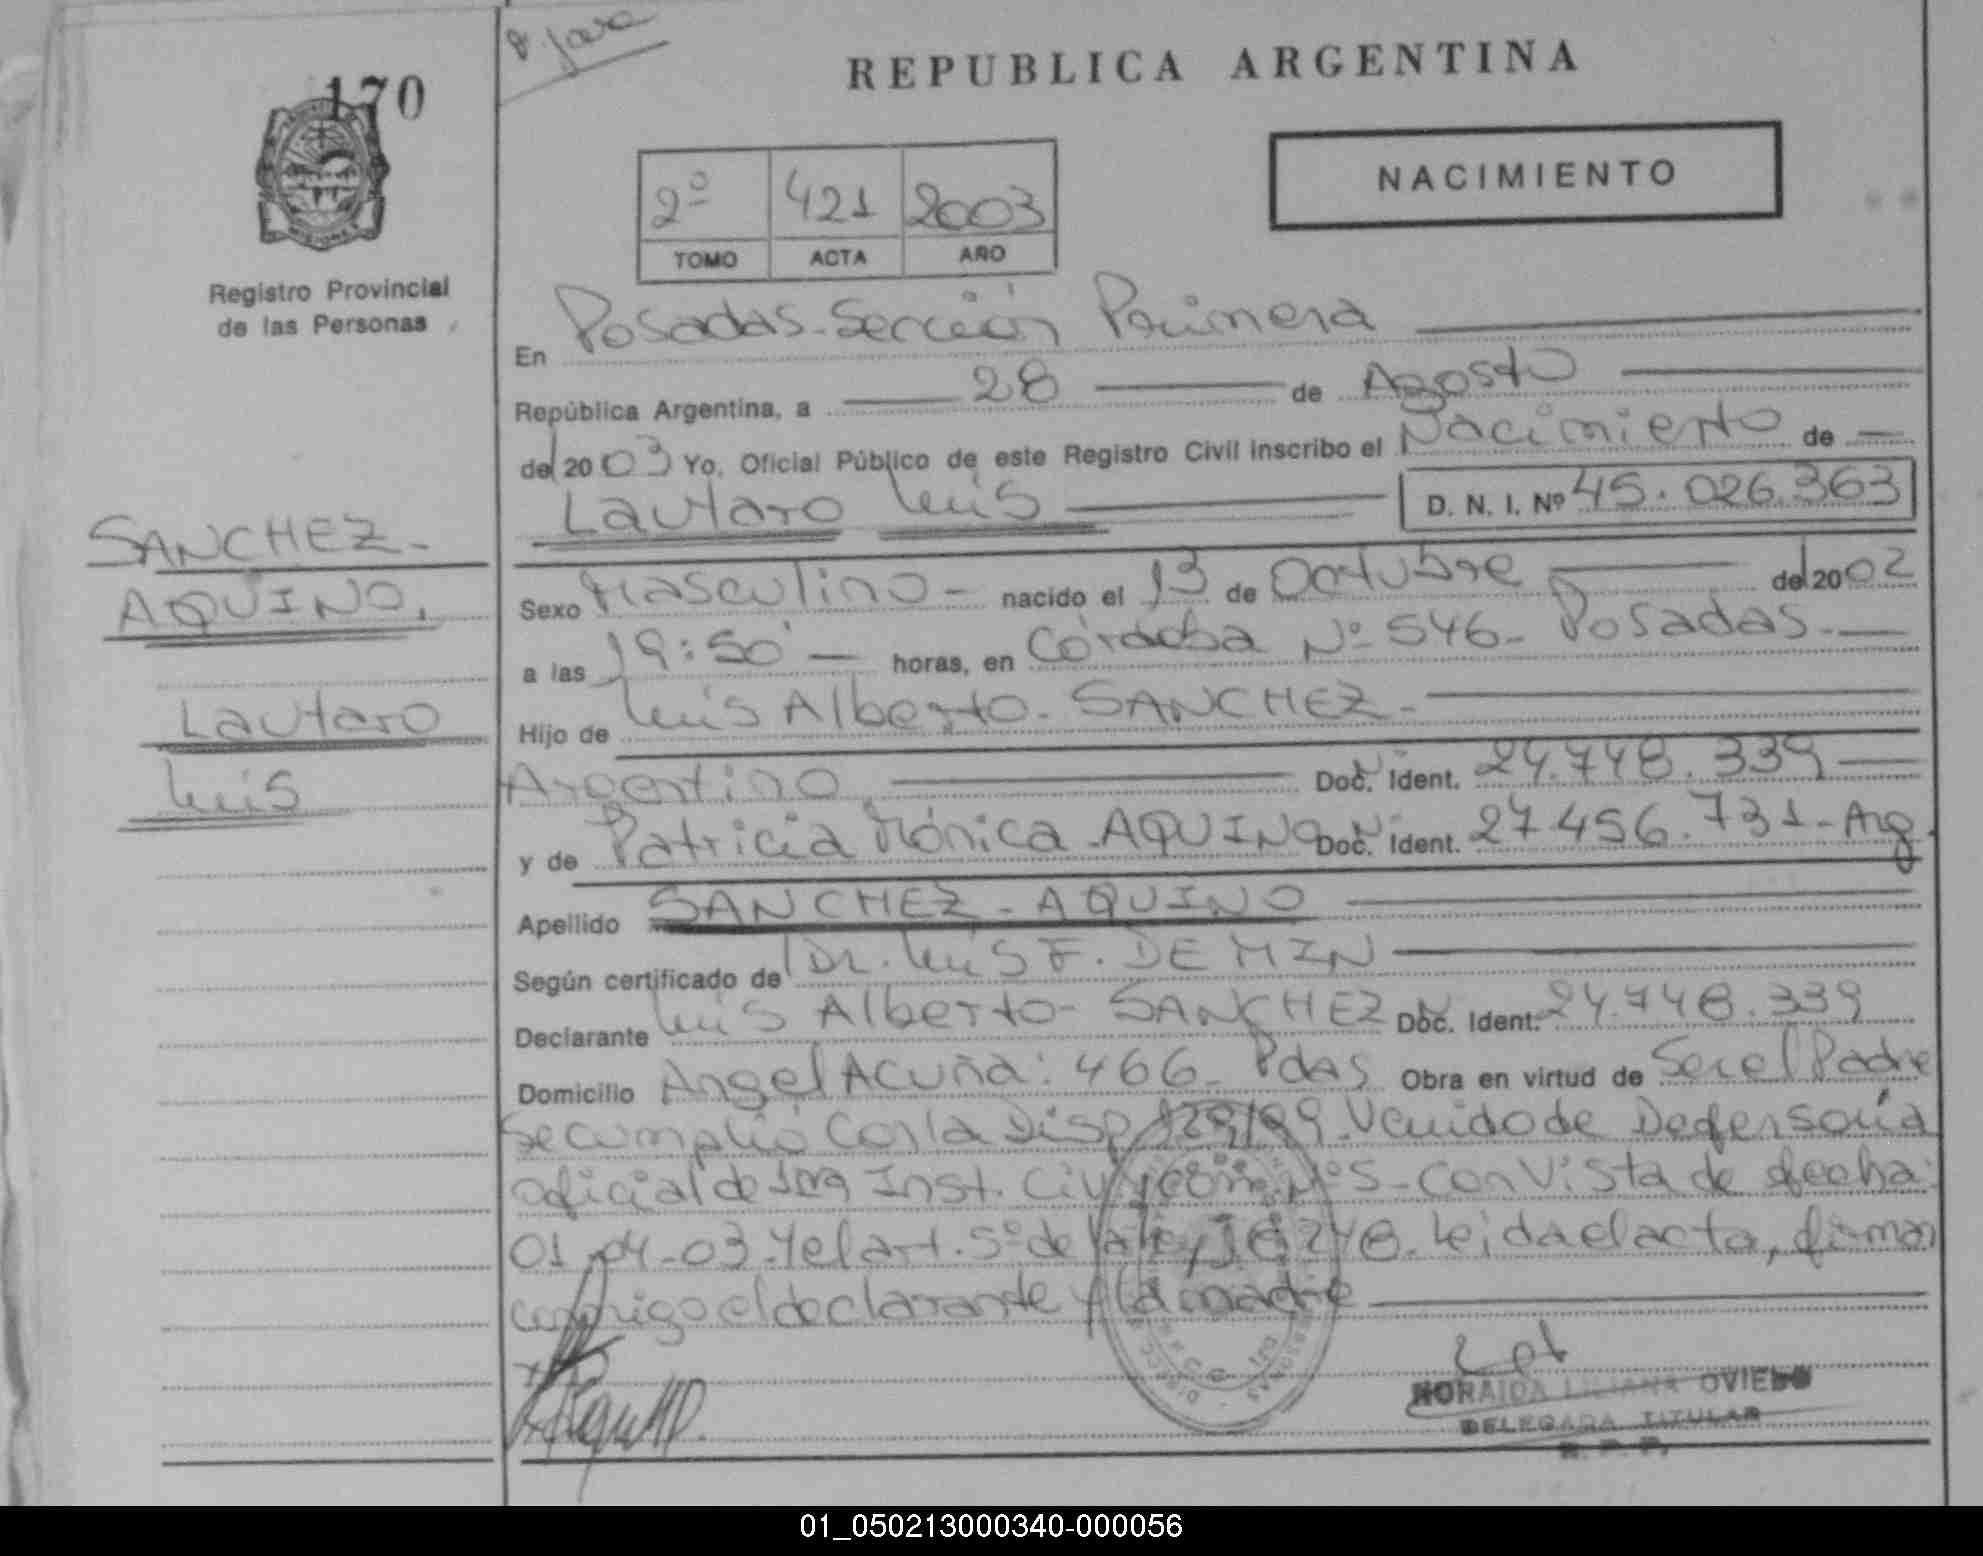 P. Java
170
REPUBLICA ARGENTINA
NACIMIENTO
2º 421 2003
TOMO ACTA AÑO
MISIONES
Registro Provincial
de las Personas
En Posadas-Sección Primera
República Argentina, a 28 de Agosto
del 2003 Yo, Oficial Público de este Registro Civil inscribo el Nacimiento de
Lautaro Luis D. N. I. Nº 45.026.363
SANCHEZ-
AQUINO,
Lautaro
Luis
Sexo Masculino - nacido el 13 de Octubre del 2002
a las 19:50 - horas, en Córdoba Nº 546- Posadas-
Hijo de Luis Alberto- SANCHEZ-
Argentino Doc. Ident. 24.748.339
y de Patricia Mónica -AQUINO Doc. Ident. 27.456.731-Arg.
Apellido SANCHEZ-AQUINO
Según certificado de Dr. Luis F. DEMIN
Declarante Luis Alberto- SANCHEZ Doc. Ident. 24.748.339
Domicilio Angel Acuña: 466- Pdas Obra en virtud de Ser el Padre
Se cumplió con la Disp 129/99. Venido de Defensoria
oficial de 1ra Inst. Civ, Nº5- Con Vista de fecha:
01-04-03. Y el art. 5º de la ley 18248. Leida el acta, firman
conmigo el declarante y la madre
NORAIDA LILIANA OVIEDO
DELEGADA TITULAR
R. P. P.
01_050213000340-000056